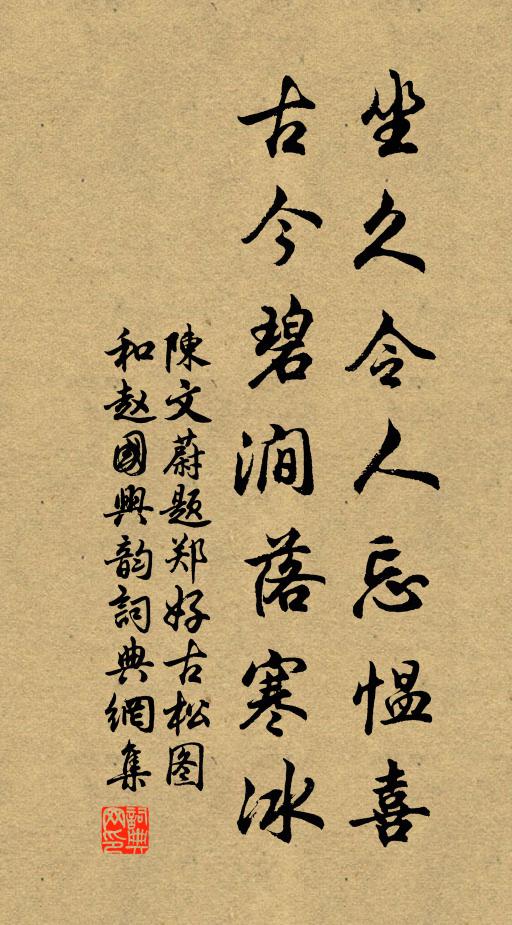 坐久令人忘愠喜
古今碧涧落寒冰
陳文蔚题郑好古松图
和赵國興韵詞典網集
詞典网印